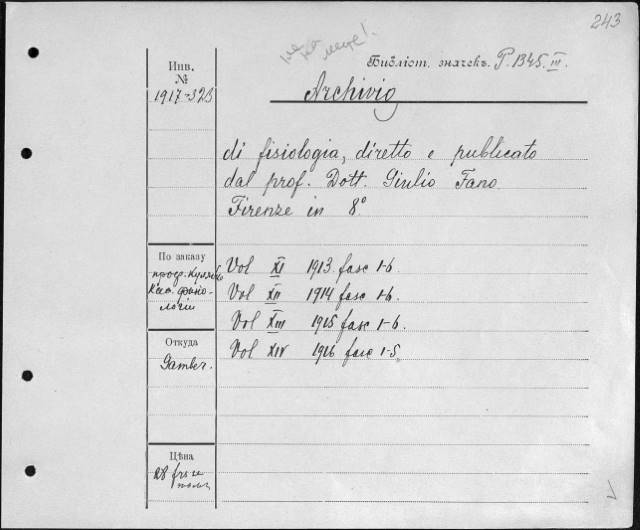 243
не на месте!
Библіот. значекъ P. 1345. III.
Инв.
№
1917-325
Archivio
di fisiologia, diretto e publicato
dal prof. Dott. Giulio Fano.
Firenze in 8°
По заказу
проф. Кулябко
Каф. физио-
логіи
Vol XI 1913. fasc 1-6.
Vol XII 1914 fasc 1-6.
Vol XIII 1915 fasc 1-6.
Vol XIV 1916 fasc 1-5.
Откуда
Gamber.
Цѣна
28 frs